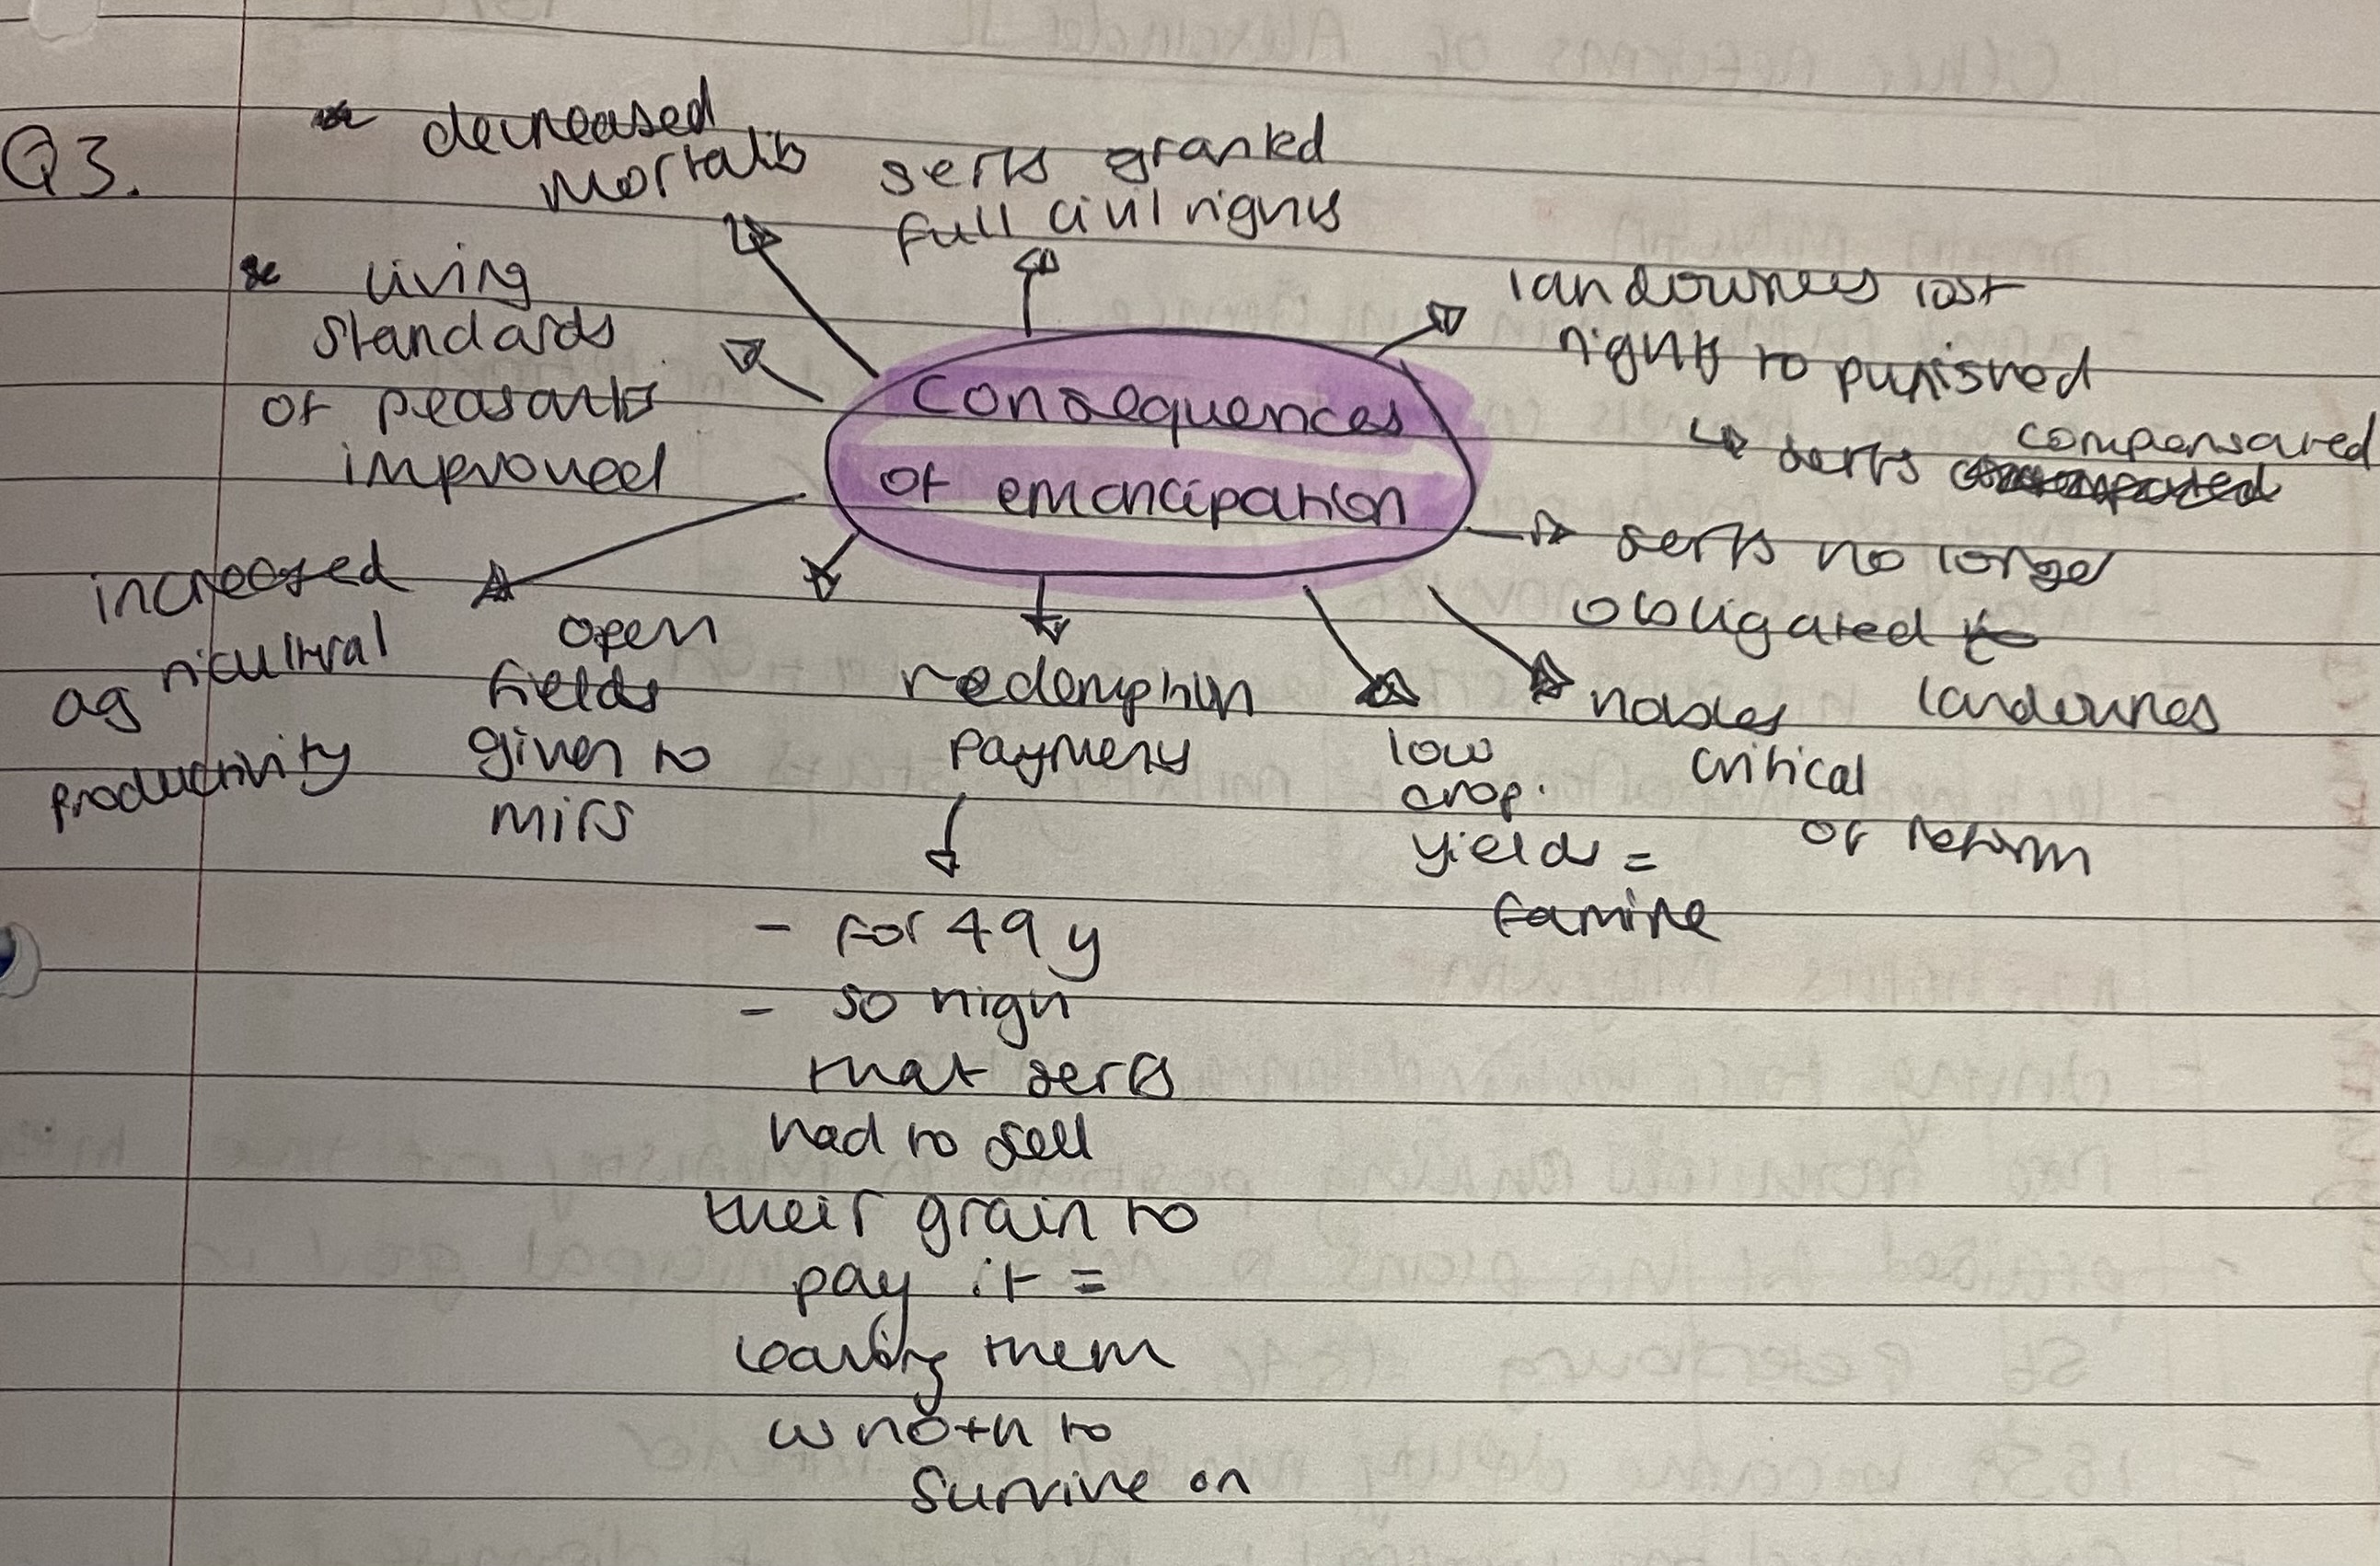 Q3.
decreased
mortality
serfs granted
full civil rights
living
standards
of peasants
improved
landowners lost
rights to punished
↳ serfs compensated
Consequences
of emancipation
serfs no longer
obligated to
landowners
increased
agricultural
productivity
open
fields
given to
mirs
redemption
payments
- for 49 y
- so high
that serfs
had to sell
their grain to
pay it =
leaving them
w noth to
survive on
low
crop
yields =
famine
nobles
critical
of reform